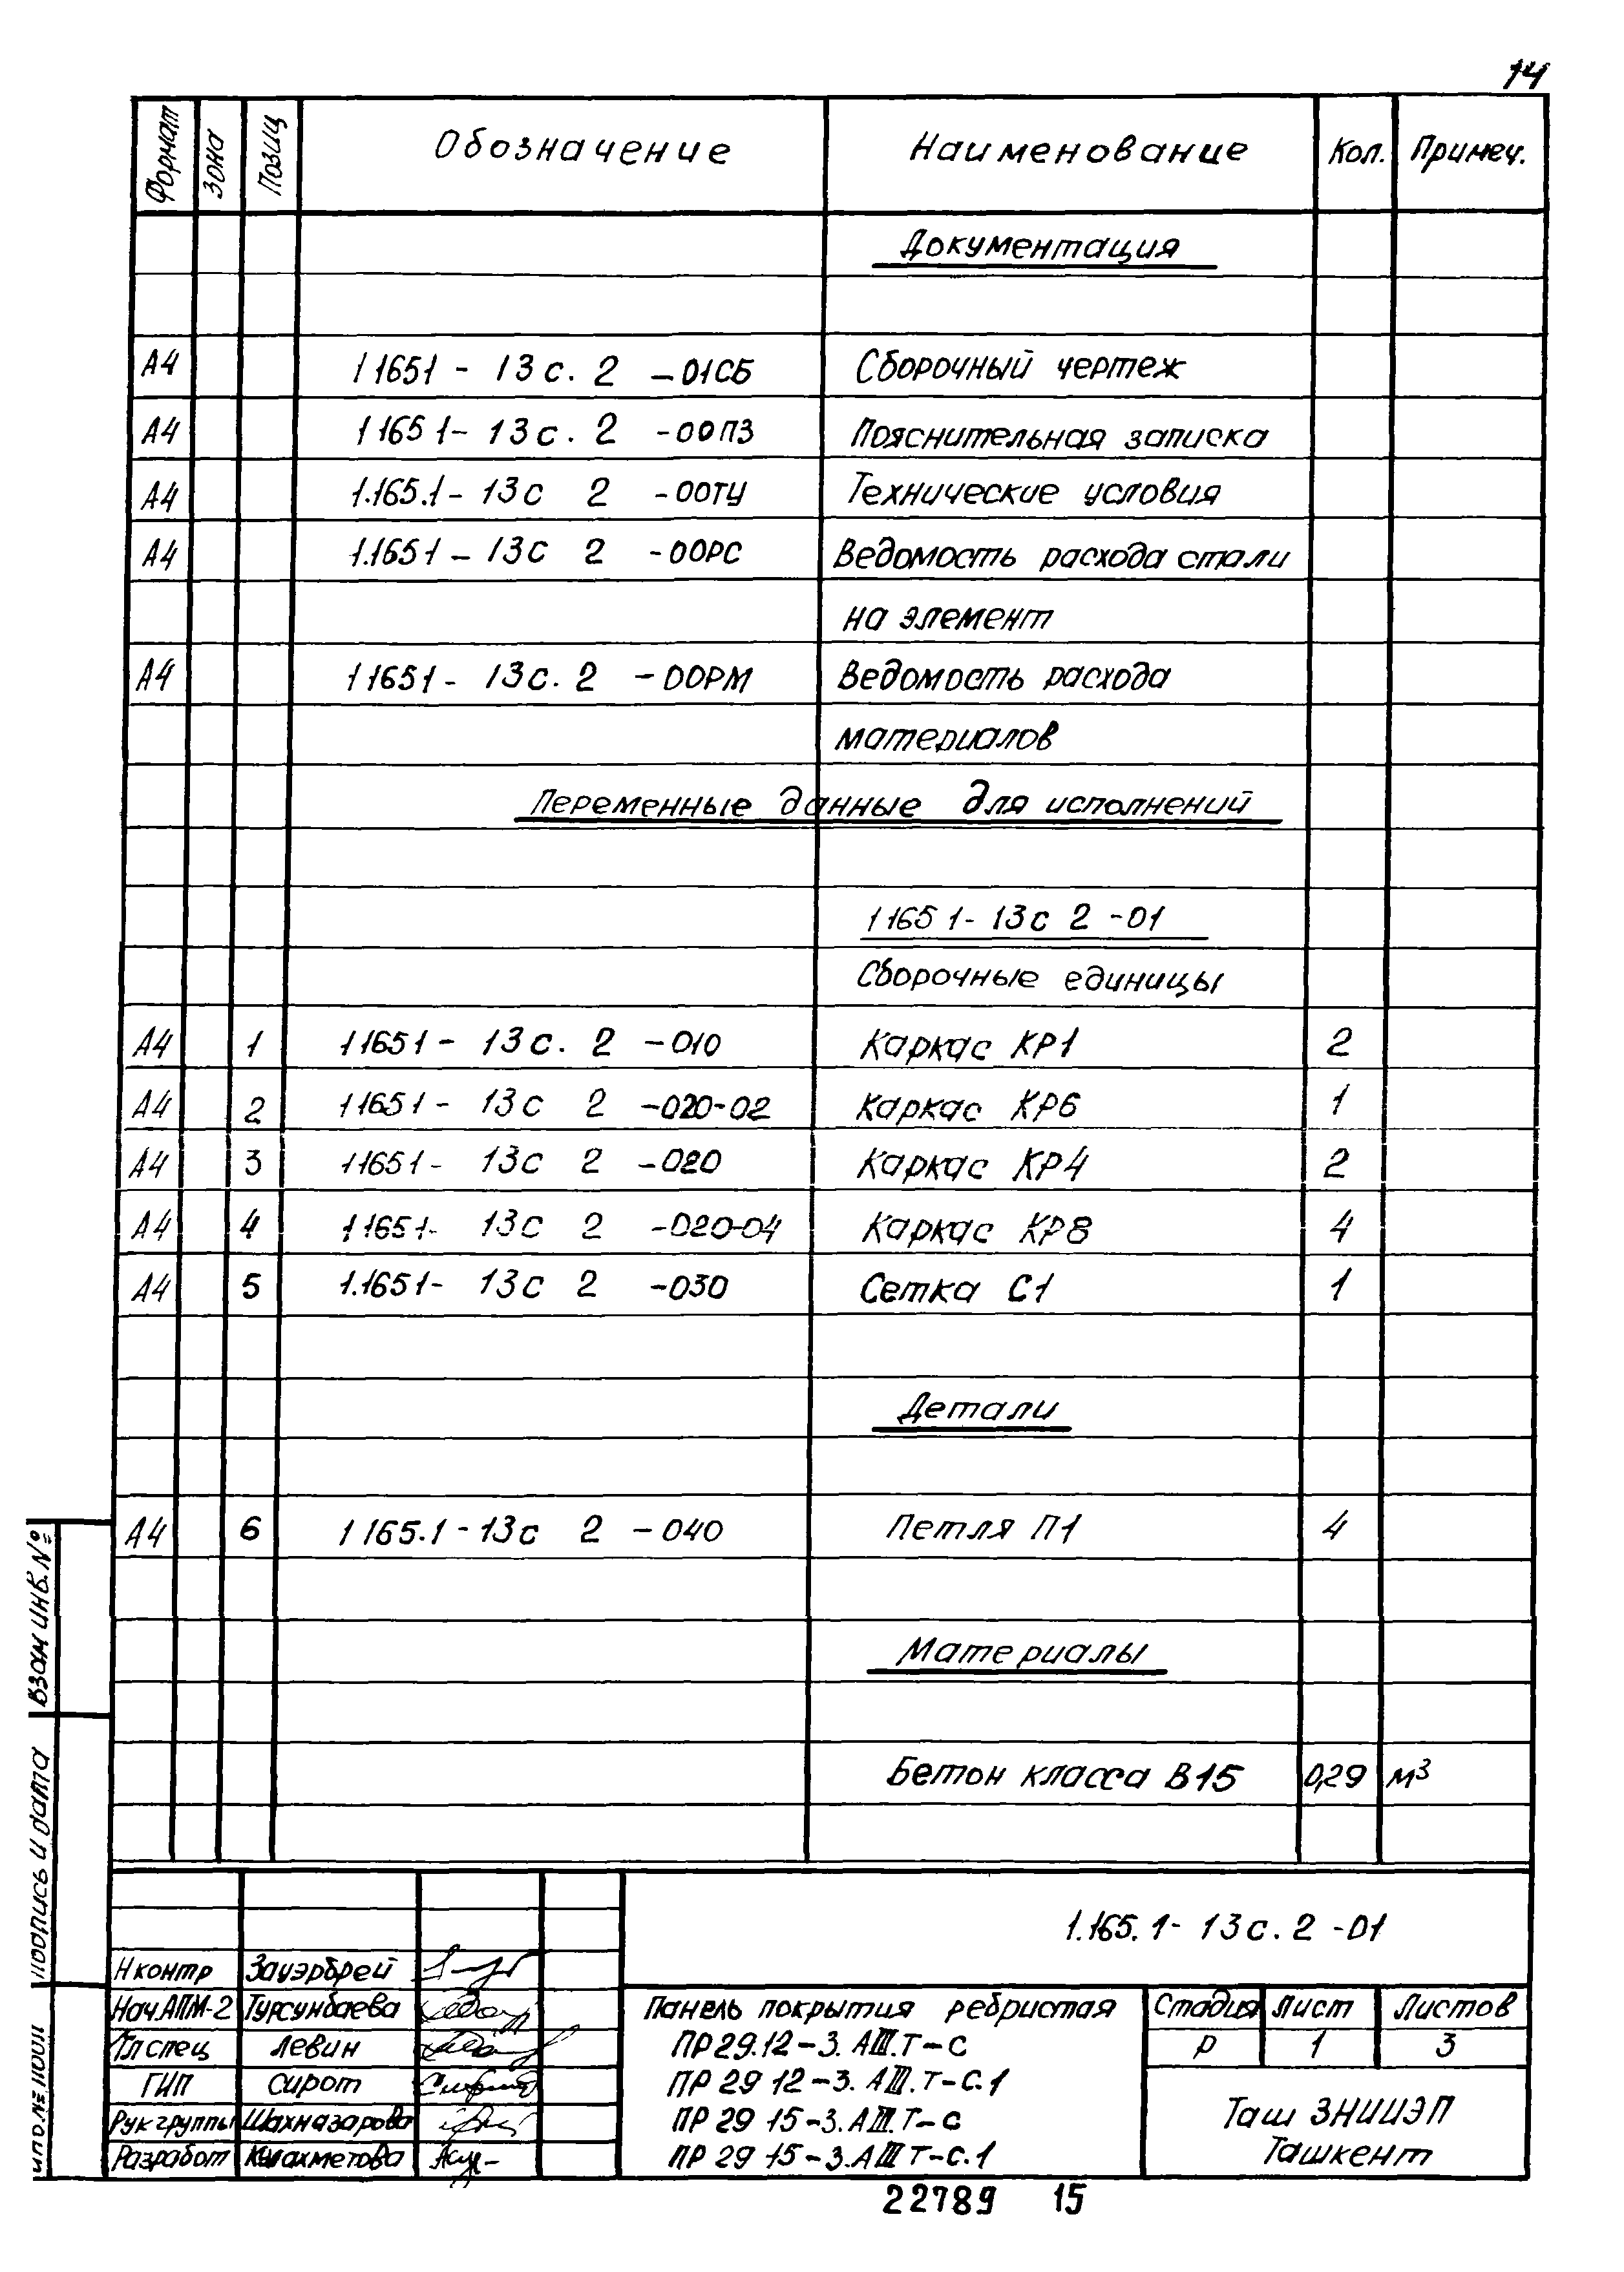 14
Формат Зона Позиц Обозначение Наименование Кол. Примеч.
Документация
А4 1 165 1 - 13с. 2 -01СБ Сборочный чертеж
А4 1 165 1 - 13с. 2 -00ПЗ Пояснительная записка
А4 1.165.1 - 13с 2 -00ТУ Технические условия
А4 1.165 1 - 13с 2 -00РС Ведомость расхода стали
на элемент
А4 1 165 1 - 13с. 2 -00РМ Ведомость расхода
материалов
Переменные данные для исполнений
1 165 1 - 13с 2 -01
Сборочные единицы
А4 1 1 165 1 - 13с. 2 -010 Каркас КР1 2
А4 2 1 165 1 - 13с 2 -020-02 Каркас КР6 1
А4 3 1 165 1 - 13с 2 -020 Каркас КР4 2
А4 4 1 165 1 - 13с 2 -020-04 Каркас КР8 4
А4 5 1.165 1 - 13с 2 -030 Сетка С1 1
Детали
А4 6 1 165.1 - 13с 2 -040 Петля П1 4
Материалы
Бетон класса В15 0,29 м³
Взам инв. №
Подпись и дата
1.165. 1 - 13с. 2 -01
Н контр Зауэрбрей
Нач.АПМ-2 Турсунбаева
Гл спец Левин
ГИП Сирот
Рук группы Шахназарова
Разработ Кулахметова
Панель покрытия ребристая
ПР 29.12-3. АIII.Т-С
ПР 29 12-3. АIII.Т-С.1
ПР 29 15-3. АIII.Т-С
ПР 29 15-3. АIII Т-С.1
Стадия Лист Листов
Р 1 3
Таш ЗНИИЭП
Ташкент
22789 15